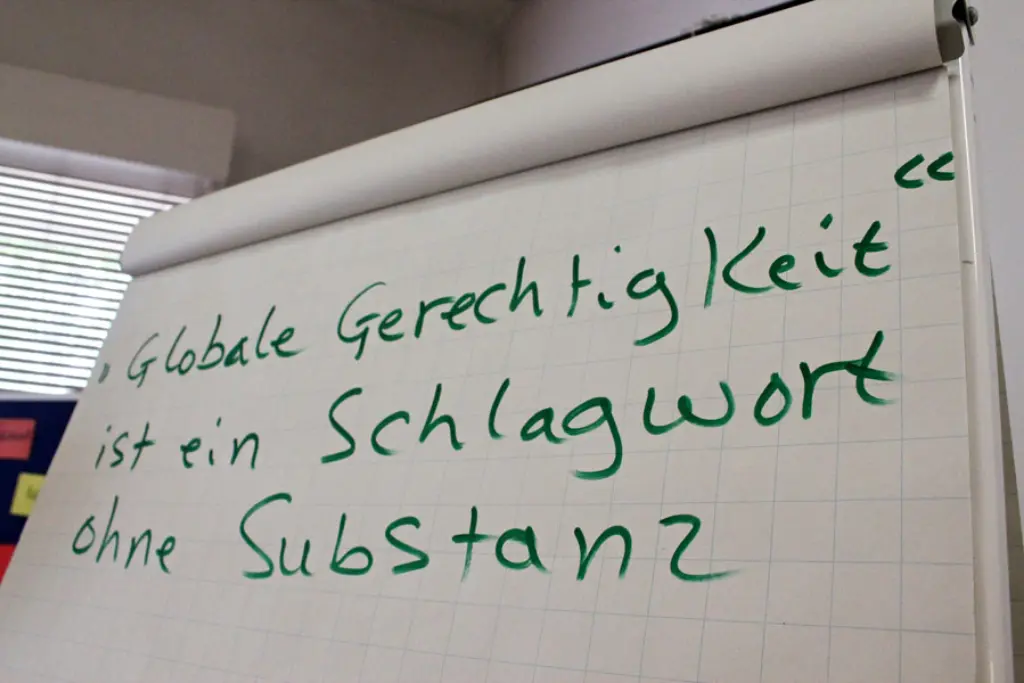 „Globale Gerechtigkeit“
ist ein Schlagwort
ohne Substanz